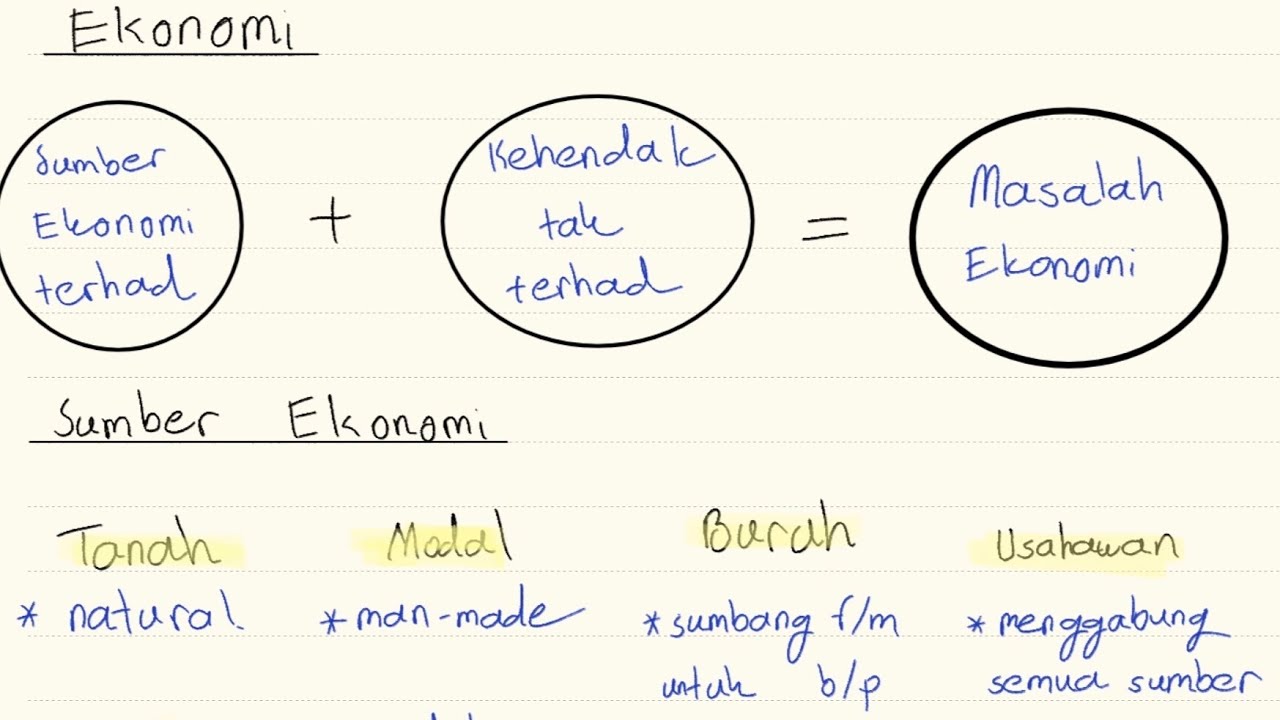 Ekonomi
Sumber
Ekonomi
terhad
+
Kehendak
tak
terhad
=
Masalah
Ekonomi
Sumber Ekonomi
Tanah Modal Burah Usahawan
* natural * man-made * sumbang f/m * menggabung
untuk b/p semua sumber